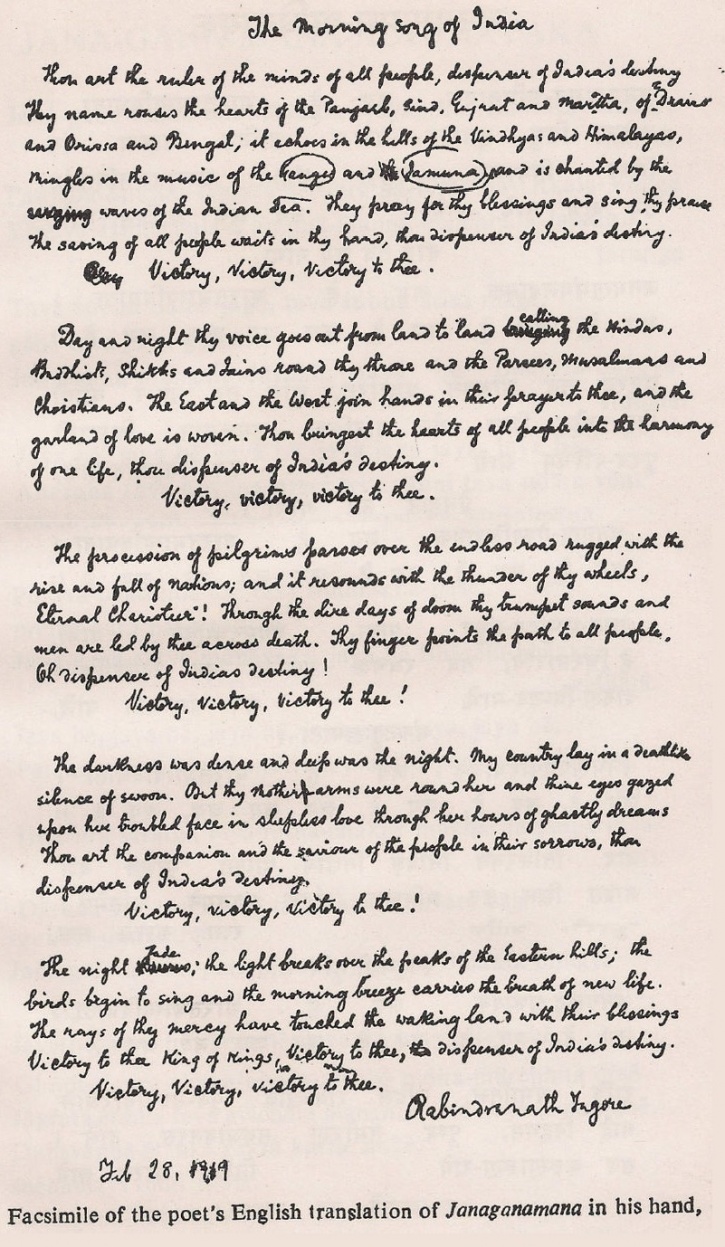 The Morning song of India
Thou art the ruler of the minds of all people, dispenser of India's destiny
Thy name rouses the hearts of the Panjaub, Sind, Gujrat and Maratha, of Dravid
and Orissa and Bengal; it echoes in the hills of the Vindhyas and Himalayas,
mingles in the music of the Ganges and Jamuna and is chanted by the
waves of the Indian Sea. They pray for thy blessings and sing thy praise
The saving of all people waits in thy hand, thou dispenser of India's destiny.
Victory, Victory, Victory to thee.
Day and night thy voice goes out from land to land calling the Hindus,
Buddhists, Shikhs and Jains round thy throne and the Parsees, Musalmans and
Christians. The East and the West join hands in their prayer to thee, and the
garland of love is woven. Thou bringest the hearts of all people into the harmony
of one life, thou dispenser of India's destiny.
Victory, victory, victory to thee.
The procession of pilgrims passes over the endless road rugged with the
rise and fall of nations; and it resounds with the thunder of thy wheels,
Eternal Charioteer! Through the dire days of doom thy trumpet sounds and
men are led by thee across death. Thy finger points the path to all people,
Oh dispenser of Indias destiny!
Victory, victory, victory to thee!
The darkness was dense and deep was the night. My country lay in a deathlike
silence of swoon. But thy Mother arms were round her and thine eyes gazed
upon her troubled face in sleepless love through her hours of ghastly dreams
Thou art the companion and the saviour of the people in their sorrows, thou
dispenser of India's destiny.
Victory, victory, victory to thee!
The night fades; the light breaks over the peaks of the Eastern hills; the
birds begin to sing and the morning breeze carries the breath of new life.
The rays of thy mercy have touched the waking land with their blessings
Victory to thee King of Kings, Victory to thee, dispenser of India's destiny.
Victory, Victory, victory to thee.
Rabindranath Tagore
Feb 28, 1919
Facsimile of the poet's English translation of Janaganamana in his hand,